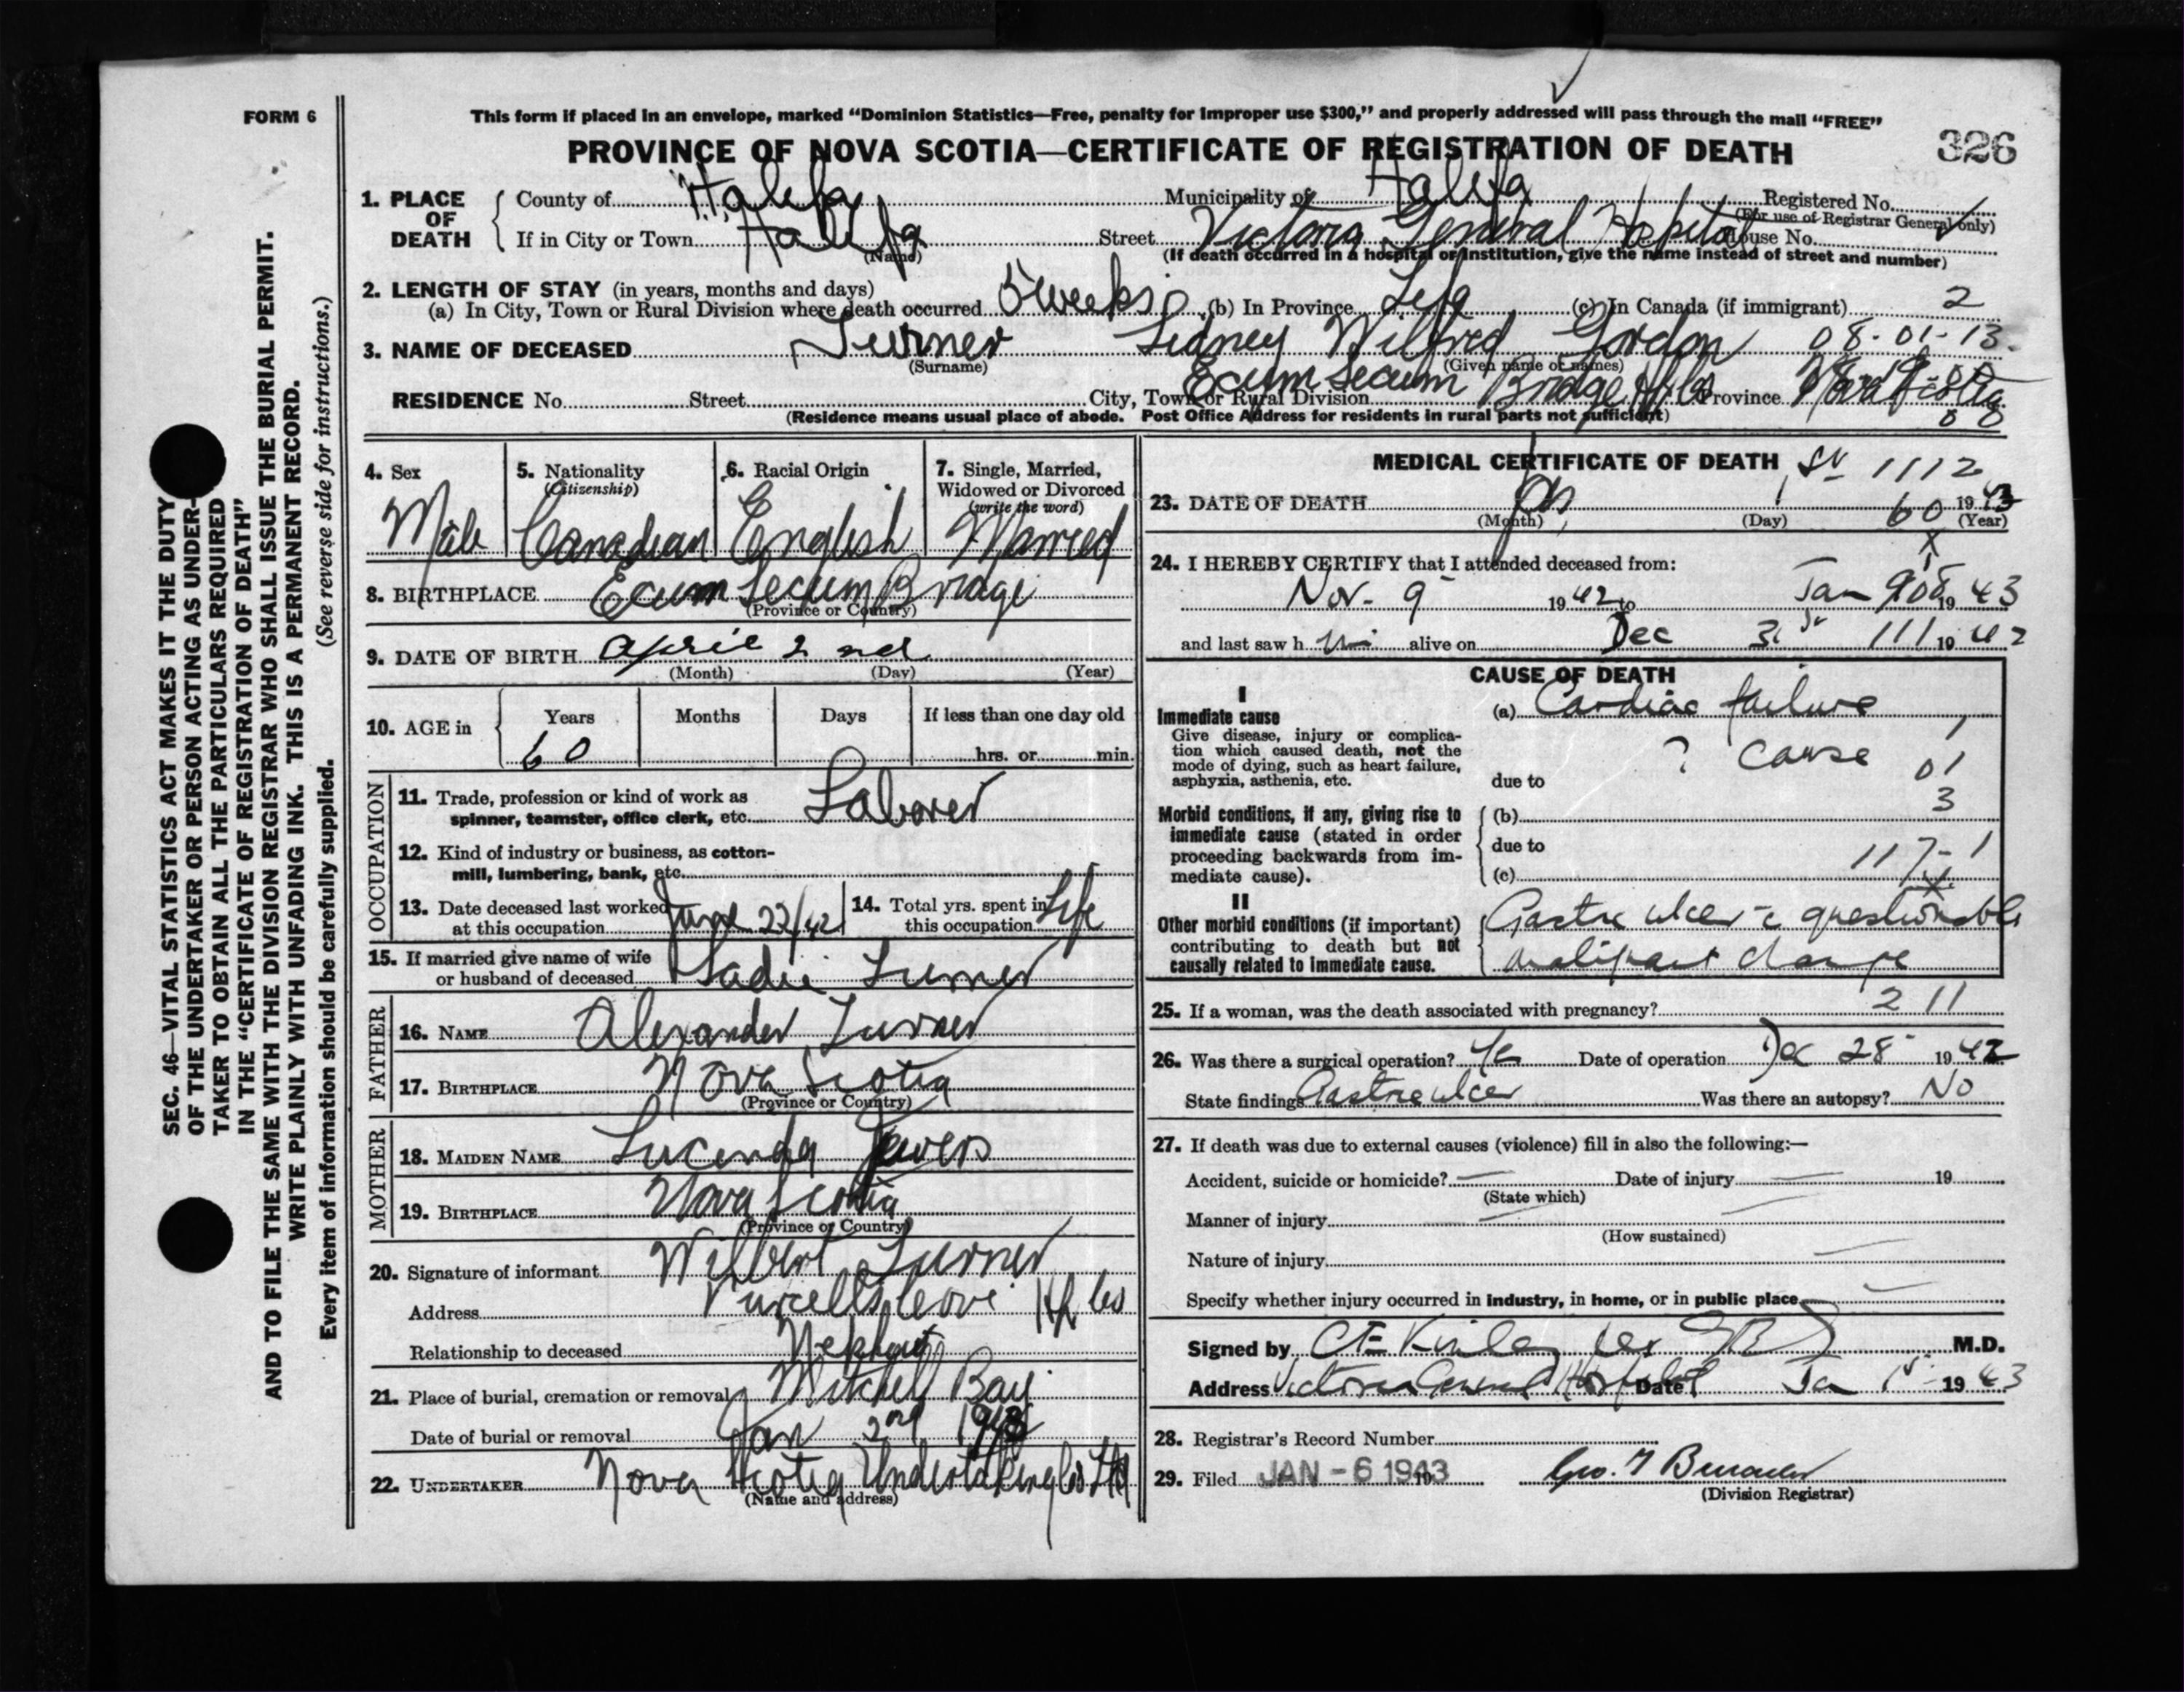 FORM 6
This form if placed in an envelope, marked “Dominion Statistics—Free, penalty for improper use $300,” and properly addressed will pass through the mail “FREE”
PROVINCE OF NOVA SCOTIA—CERTIFICATE OF REGISTRATION OF DEATH
326
1. PLACE OF DEATH
County of Halifax Municipality of Halifax Registered No.
(For use of Registrar General only)
If in City or Town Halifax Street Victoria General Hospital House No.
(Name) (If death occurred in a hospital or institution, give the name instead of street and number)
2. LENGTH OF STAY (in years, months and days)
(a) In City, Town or Rural Division where death occurred 5 weeks (b) In Province Life (c) In Canada (if immigrant) 2
3. NAME OF DECEASED Turner Sidney Wilfred Gordon 08-01-13
(Surname) (Given name or names)
RESIDENCE No. Street City, Town or Rural Division Ecum Secum Bridge Hfx Co Province Nova Scotia
(Residence means usual place of abode. Post Office Address for residents in rural parts not sufficient)
4. Sex
Male
5. Nationality
(Citizenship)
Canadian
6. Racial Origin
English
7. Single, Married, Widowed or Divorced
(write the word)
Married
8. BIRTHPLACE Ecum Secum Bridge
(Province or Country)
9. DATE OF BIRTH April 2nd
(Month) (Day) (Year)
10. AGE in
Years Months Days If less than one day old
60 hrs. or min.
OCCUPATION
11. Trade, profession or kind of work as
spinner, teamster, office clerk, etc. Laborer
12. Kind of industry or business, as cotton-
mill, lumbering, bank, etc.
13. Date deceased last worked
at this occupation June 22/42
14. Total yrs. spent in
this occupation Life
15. If married give name of wife
or husband of deceased Sadie Turner
FATHER
16. NAME Alexander Turner
17. BIRTHPLACE Nova Scotia
(Province or Country)
MOTHER
18. MAIDEN NAME Lucinda
19. BIRTHPLACE Nova Scotia
(Province or Country)
20. Signature of informant Wilbert Turner
Address Purcells Cove Hfx Co
Relationship to deceased Nephew
21. Place of burial, cremation or removal Mitchell Bay
Date of burial or removal Jan 2nd 1943
22. UNDERTAKER Nova Scotia Undertaking Co. Ltd
(Name and address)
MEDICAL CERTIFICATE OF DEATH
1112
23. DATE OF DEATH Jan 1 1943
(Month) (Day) 60 (Year)
24. I HEREBY CERTIFY that I attended deceased from:
Nov. 9 1942 to Jan 1943
and last saw him alive on Dec 31st 111 1942
CAUSE OF DEATH
I
Immediate cause
Give disease, injury or complica-
tion which caused death, not the
mode of dying, such as heart failure,
asphyxia, asthenia, etc.
(a) Cardiac failure
1
due to ? cause
01
3
Morbid conditions, if any, giving rise to
immediate cause (stated in order
proceeding backwards from im-
mediate cause).
(b)
due to
117-1
(c)
II
Other morbid conditions (if important)
contributing to death but not
causally related to immediate cause.
Gastric ulcer c questionable
malignant change
25. If a woman, was the death associated with pregnancy? 211
26. Was there a surgical operation? Yes Date of operation Dec 28 1942
State findings Gastric ulcer Was there an autopsy? No
27. If death was due to external causes (violence) fill in also the following:—
Accident, suicide or homicide? — Date of injury — 19
(State which)
Manner of injury
(How sustained)
Nature of injury
Specify whether injury occurred in industry, in home, or in public place
Signed by M.D.
Address Victoria General Hospital Date Jan 1st 1943
28. Registrar's Record Number
29. Filed JAN -6 1943 19
(Division Registrar)
SEC. 46—VITAL STATISTICS ACT MAKES IT THE DUTY
OF THE UNDERTAKER OR PERSON ACTING AS UNDER-
TAKER TO OBTAIN ALL THE PARTICULARS REQUIRED
IN THE “CERTIFICATE OF REGISTRATION OF DEATH”
AND TO FILE THE SAME WITH THE DIVISION REGISTRAR WHO SHALL ISSUE THE BURIAL PERMIT.
WRITE PLAINLY WITH UNFADING INK. THIS IS A PERMANENT RECORD.
Every item of information should be carefully supplied. (See reverse side for instructions.)